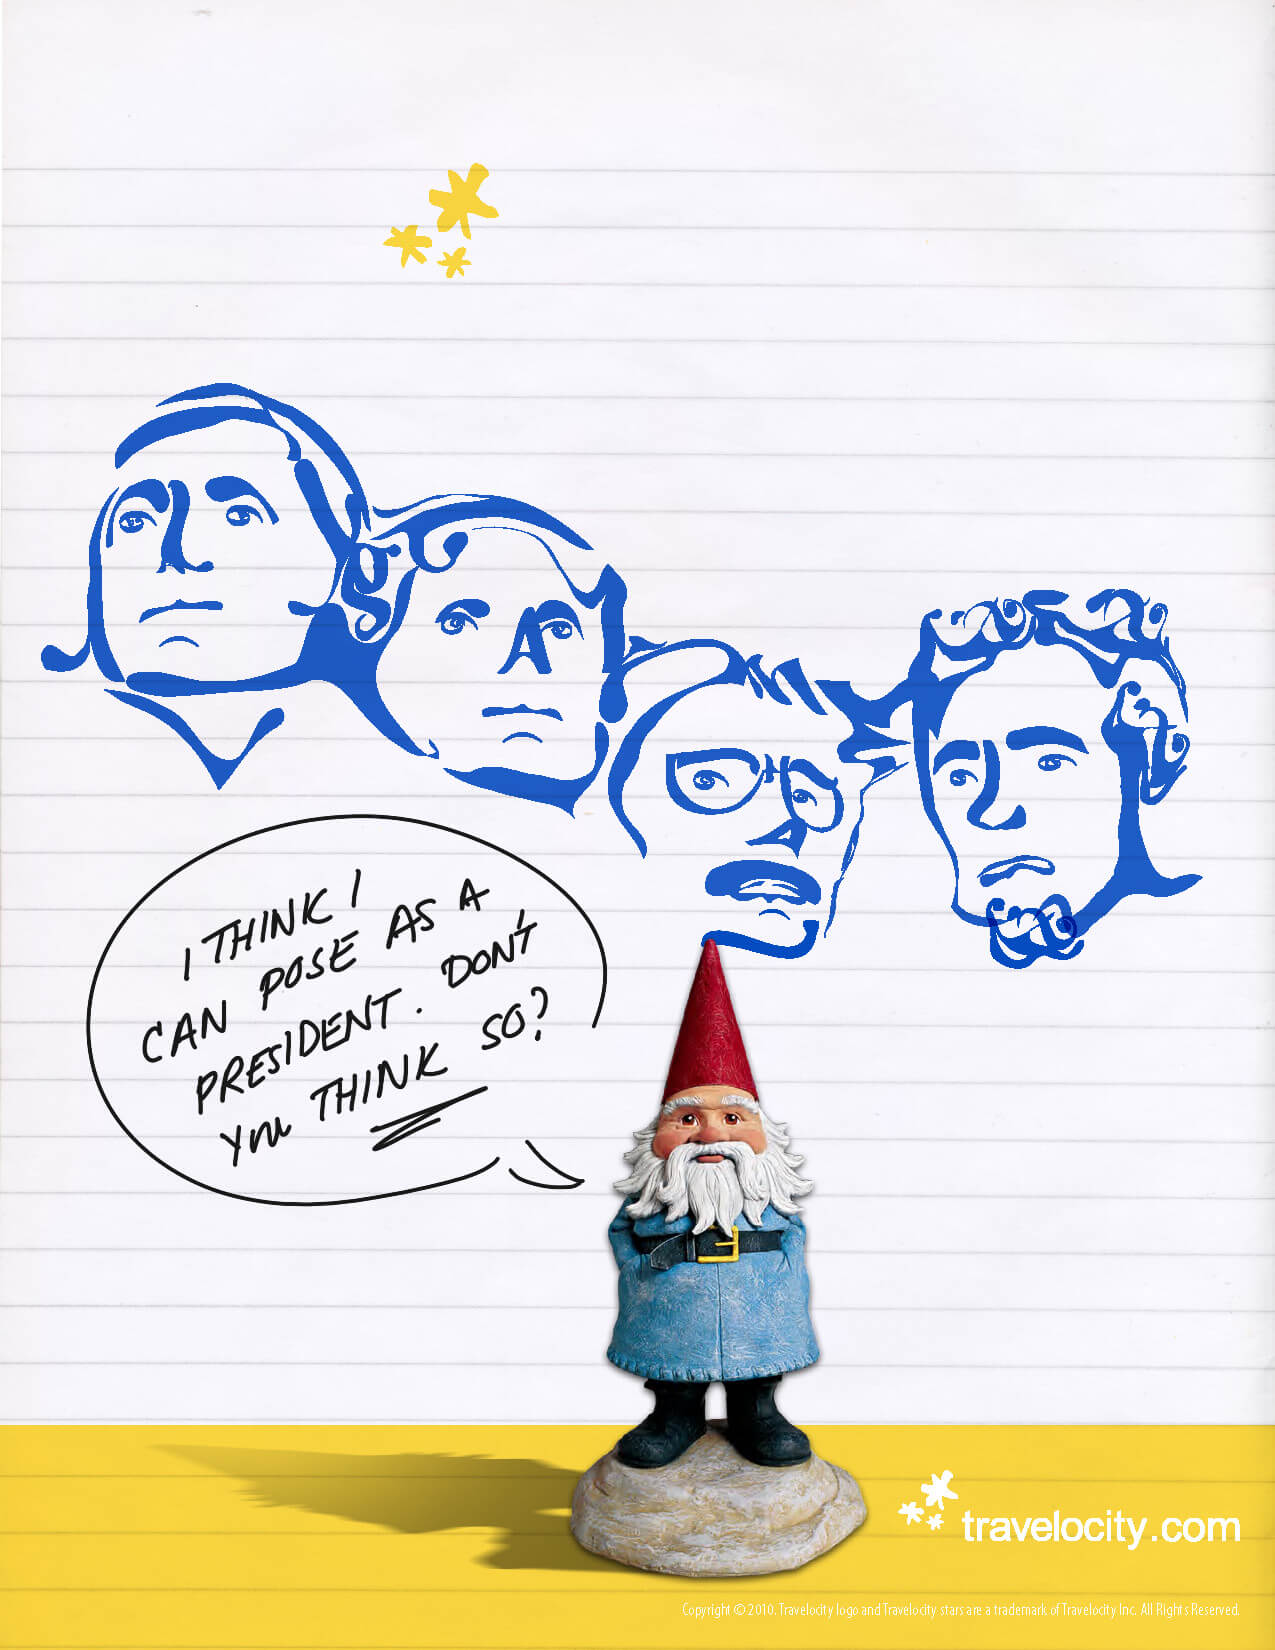 I THINK I
CAN POSE AS A
PRESIDENT. DON'T
YOU THINK SO?
travelocity.com
Copyright © 2010. Travelocity logo and Travelocity stars are a trademark of Travelocity Inc. All Rights Reserved.